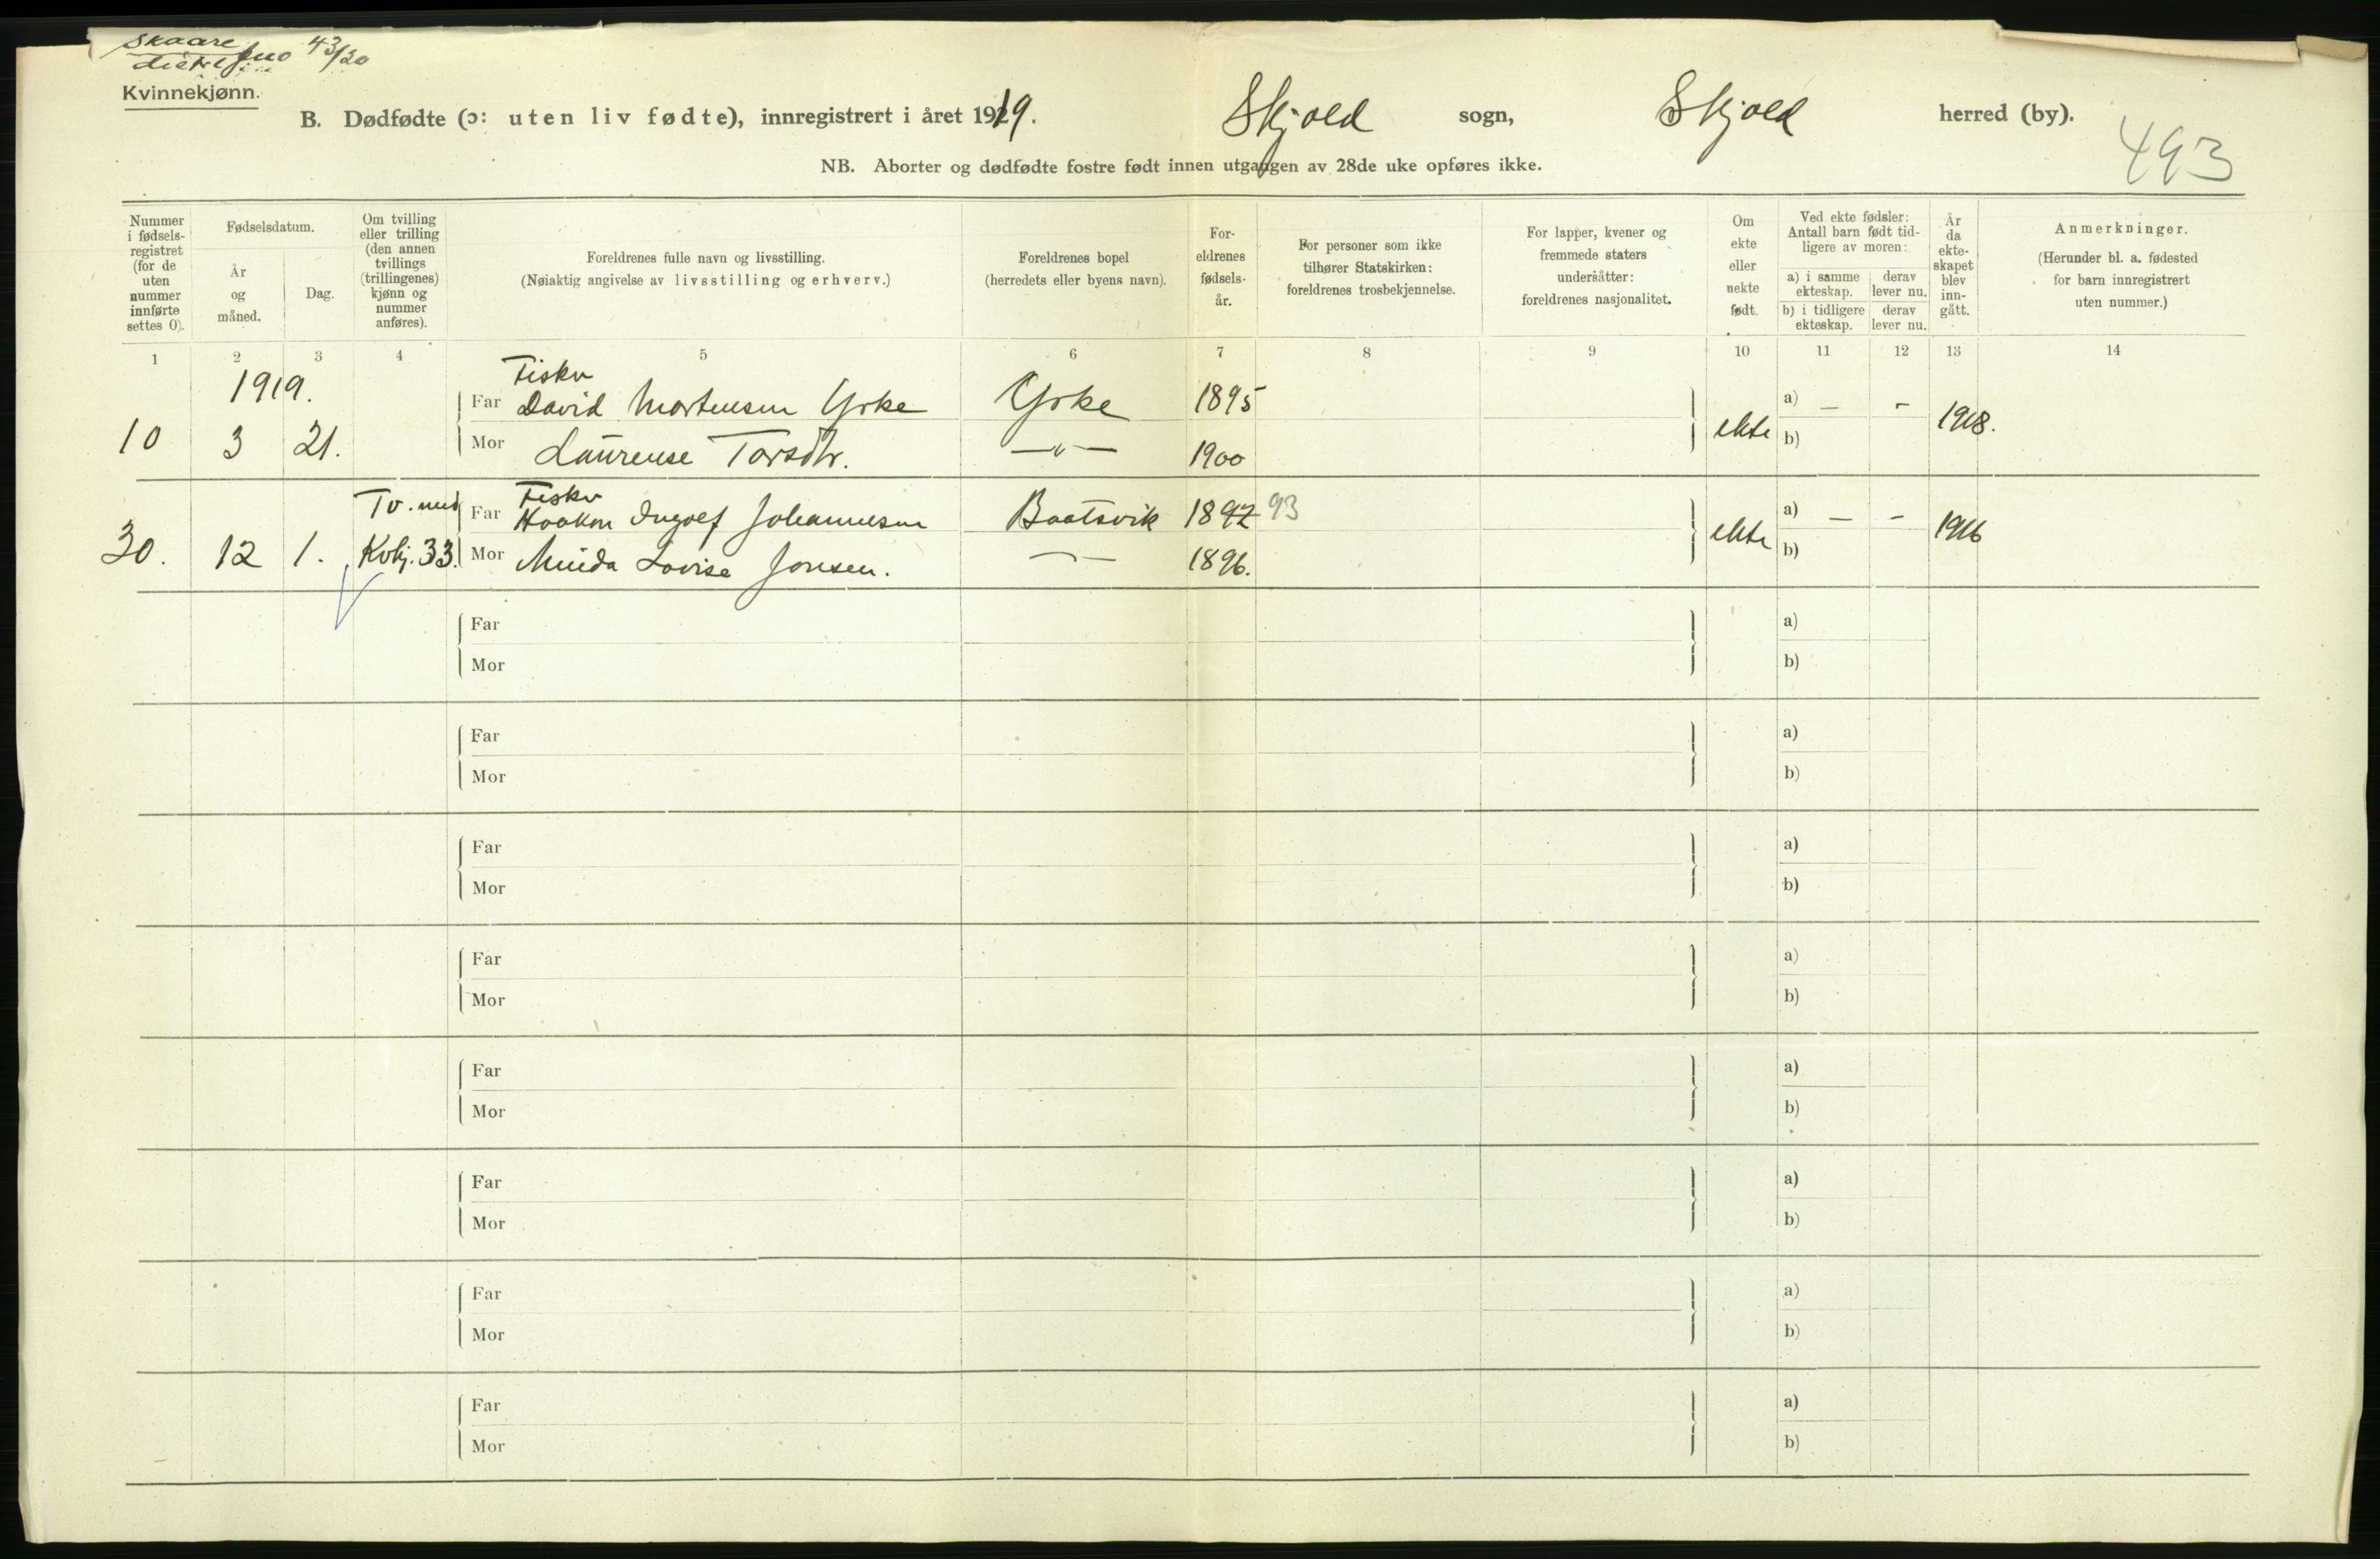 Skaare
43/20
Kvinnekjønn.
B. Dødfødte (ɔ: uten liv fødte), innregistrert i året 1919. Skjold sogn, Skjold herred (by).
493
NB. Aborter og dødfødte fostre født innen utgangen av 28de uke opføres ikke.
Nummer i fødsels-registret (for de uten nummer innførte settes 0).
Fødselsdatum.
År og måned.
Dag.
Om tvilling eller trilling (den annen tvillings (trillingenes) kjønn og nummer anføres).
Foreldrenes fulle navn og livsstilling.
(Nøiaktig angivelse av livsstilling og erhverv.)
Foreldrenes bopel
(herredets eller byens navn).
For-eldrenes fødsels-år.
For personer som ikke tilhører Statskirken: foreldrenes trosbekjennelse.
For lapper, kvener og fremmede staters undersåtter: foreldrenes nasjonalitet.
Om ekte eller uekte født.
Ved ekte fødsler: Antall barn født tid-ligere av moren:
a) i samme ekteskap.
derav lever nu.
b) i tidligere ekteskap.
derav lever nu.
År da ekte-skapet blev inn-gått.
Anmerkninger.
(Herunder bl. a. fødested for barn innregistrert uten nummer.)
1 2 3 4 5 6 7 8 9 10 11 12 13 14
1919.
Fisker
Far David Mortensen Yrke Yrke 1895 a) — -
10 3 21. Mor Laurense Torsdtr. —"— 1900 ekte b) 1918.
Tv. med Fisker
Far Haakon Ingolf Johannesen Baatsvik 1892 93 a) — -
30. 12 1. Kvkj. 33. Mor Minda Lovise Jonsen. — 1896. ekte b) 1916
Far a)
Mor b)
Far a)
Mor b)
Far a)
Mor b)
Far a)
Mor b)
Far a)
Mor b)
Far a)
Mor b)
Far a)
Mor b)
Far a)
Mor b)